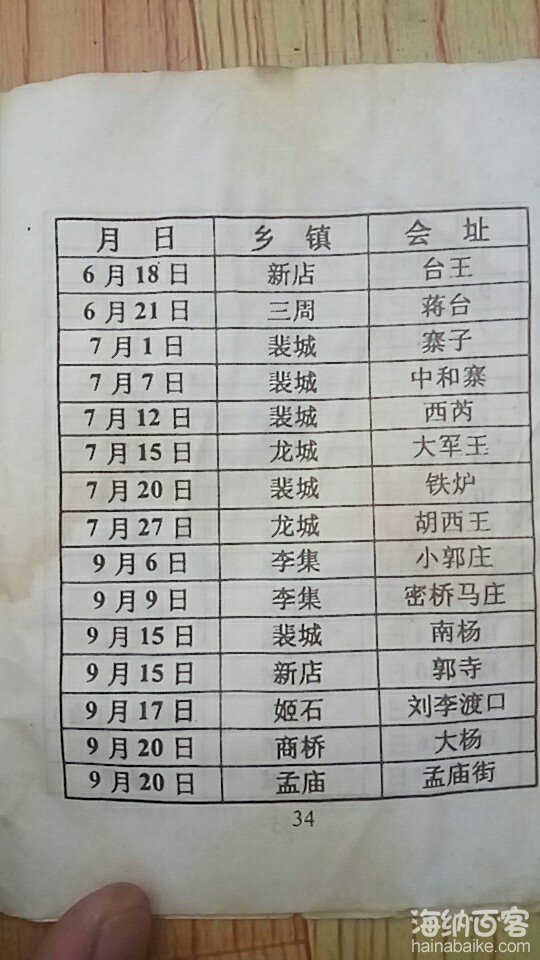 月 日 乡 镇 会 址
6月18日 新店 台王
6月21日 三周 蒋台
7月1日 裴城 寨子
7月7日 裴城 中和寨
7月12日 裴城 西芮
7月15日 龙城 大军王
7月20日 裴城 铁炉
7月27日 龙城 胡西王
9月6日 李集 小郭庄
9月9日 李集 密桥马庄
9月15日 裴城 南杨
9月15日 新店 郭寺
9月17日 姬石 刘李渡口
9月20日 商桥 大杨
9月20日 孟庙 孟庙街
34
海纳百客
hainabaike.com